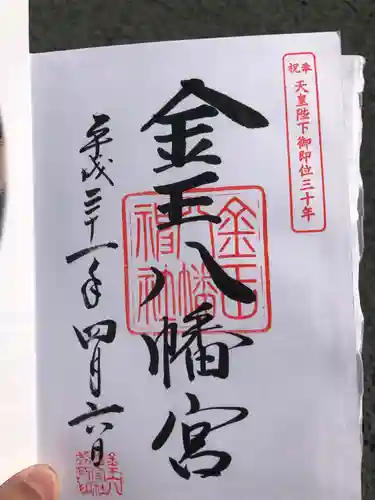 奉祝
天皇陛下御即位三十年
金王八幡宮
金王八幡神社
平成三十一年四月六日